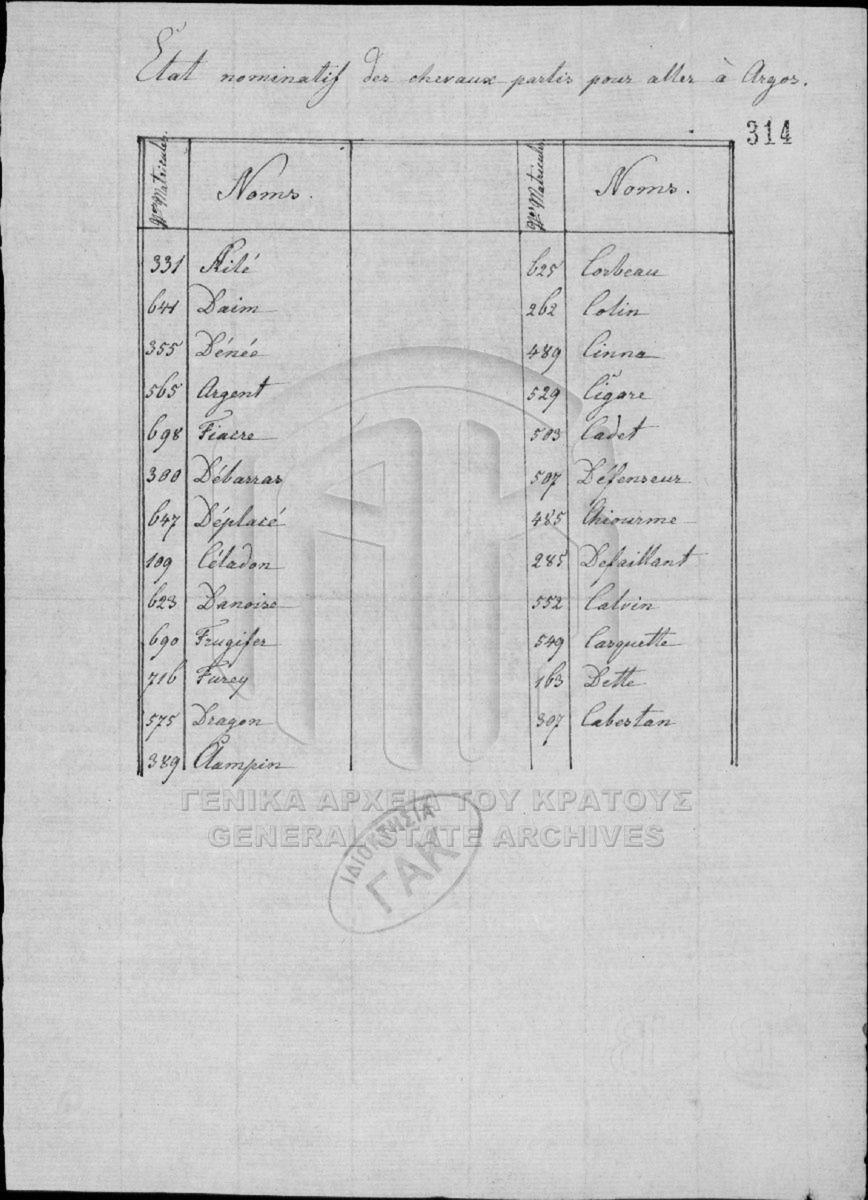 État nominatif des chevaux partis pour aller à Argos.
314
Nos Matricules. Noms. Nos Matricules. Noms.
331 Ailé 625 Corbeau
641 Daim 262 Colin
355 Dénéé 489 Cinna
565 Argent 529 Cigare
698 Fiacre 503 Cadet
300 Débarras 507 Défenseur
647 Déplacé 485 Chiourme
109 Céladon 285 Defaillant
623 Danoise 552 Calvin
690 Frugifer 549 Casquette
716 Furey 163 Dette
575 Dragon 307 Cabestan
389 Clampin
ΓΕΝΙΚΑ ΑΡΧΕΙΑ ΤΟΥ ΚΡΑΤΟΥΣ
GENERAL STATE ARCHIVES
ΙΔΙΟΚΤΗΣΙΑ
ΓΑΚ